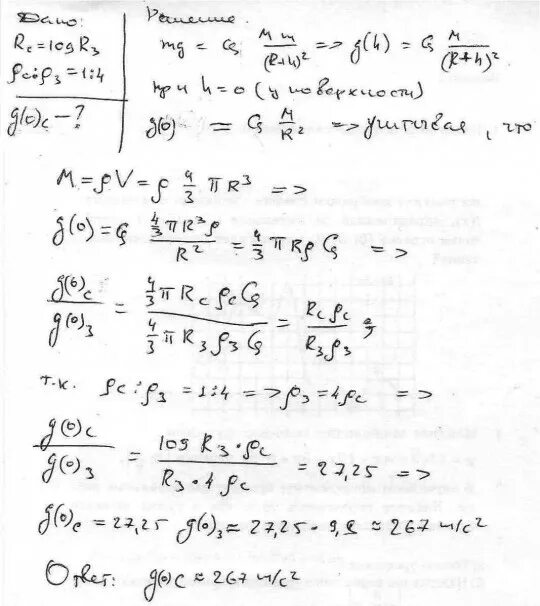 Дано:
Rс = 109 Rз
ρс:ρз = 1:4
g(0)с - ?
Решение.
mg = G Mm/(R+h)² => g(h) = G M/(R+h)²
при h=0 (у поверхности)
g(0) = G M/R² => учитывая, что
M = ρV = ρ 4/3 πR³ =>
g(0) = G (4/3 πR³ρ)/R² = 4/3 πRρG =>
g(0)с/g(0)з = (4/3 πRсρсG)/(4/3 πRзρзG) = Rсρс/Rзρз ;
т.к. ρс:ρз = 1:4 => ρз = 4ρс =>
g(0)с/g(0)з = (109 Rз·ρс)/(Rз·4ρс) = 27,25 =>
g(0)с = 27,25 g(0)з ≈ 27,25 · 9,8 ≈ 267 м/с²
Ответ: g(0)с ≈ 267 м/с²